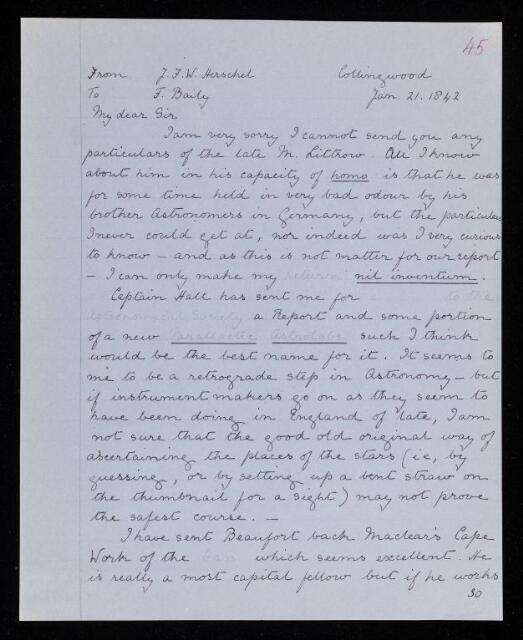 45
From J.F.W. Herschel Collingwood
To F. Baily Jan. 21. 1842
My dear Sir
I am very sorry I cannot send you any
particulars of the late M. Littrow. All I know
about him in his capacity of homo is that he was
for some time held in very bad odour by his
brother Astronomers in Germany, but the particulars
I never could get at, nor indeed was I very curious
to know – and as this is not matter for our report
– I can only make my return nil inventum.
Captain Hall has sent me for to the
Astronomical Society a Report and some portion
of a new Parallactic Astrolabe such I think
would be the best name for it. It seems to
me to be a retrograde step in Astronomy – but
if instrument makers go on as they seem to
have been doing in England of late, I am
not sure that the good old original way of
ascertaining the places of the stars (i.e, by
guessing, or by setting up a bent straw on
the thumbnail for a sight) may not prove
the safest course. –
I have sent Beaufort back Maclear's Cape
Work of the which seems excellent. He
is really a most capital fellow but if he works
so